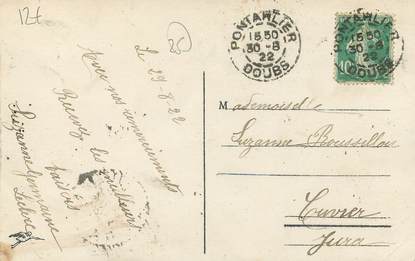 12t
25
Le 29-8-22
Avec nos remerciements
Recevez les meilleurs
baisers
Suzanne Germaine
Leclerc
PONTARLIER
15 50
30 - 8
22
DOUBS
PONTARLIER
15 50
30 - 8
22
DOUBS
10
Mademoiselle
Suzanne Roussillon
Cuvier
Jura